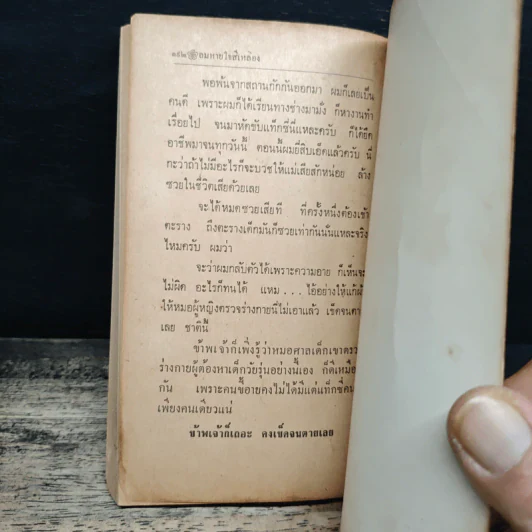 ๑๔๒ ลมหายใจสีเหลือง
พอพ้นจากสถานกักกันออกมา ผมก็เลยเป็น
คนดี เพราะผมก็ได้เรียนทางช่างมามั่ง ก็หางานทำ
เรื่อยไป จนมาหัดขับแท็กซี่นี่แหละครับ ก็ได้ยึด
อาชีพมาจนทุกวันนี้ ตอนนี้ผมยี่สิบเอ็ดแล้วครับ นี่
กะว่าถ้าไม่มีอะไรก็จะบวชให้แม่เสียสักหน่อย ล้าง
ซวยในชีวิตเสียด้วยเลย
จะได้หมดซวยเสียที ที่ครั้งหนึ่งต้องเข้า
ตะราง ถึงตะรางเด็กมันก็ซวยเท่ากันนั่นแหละจริง
ไหมครับ ผมว่า
จะว่าผมกลับตัวได้เพราะความอาย ก็เห็นจะ
ไม่ผิด อะไรก็ทนได้ แหม . . . ไอ้อย่างให้แก้ผ้า
ให้หมอผู้หญิงตรวจร่างกายนี่ไม่เอาแล้ว เข็ดจนตาย
เลย ชาตินี้
ข้าพเจ้าก็เพิ่งรู้ว่าหมอศาลเด็กเขาตรวจ
ร่างกายผู้ต้องหาเด็กวัยรุ่นอย่างนี้เอง ก็ดีเหมือน
กัน เพราะคนขี้อายคงไม่ได้มีแต่แท็กซี่คน
เพียงคนเดียวแน่
ข้าพเจ้าก็เถอะ คงเข็ดจนตายเลย